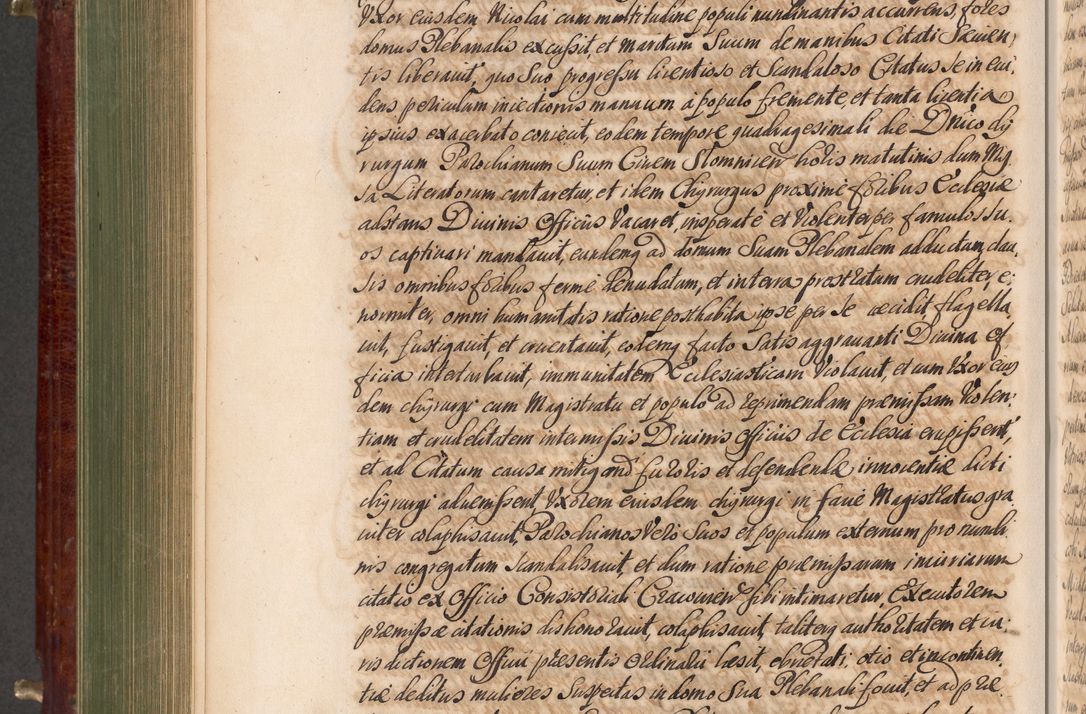 Vxor eiusdem Nicolai cum multitudine populi nundinantis accurrens, fores
domus Plebanalis excussit, et maritum Suum de manibus Citati Sæuien,
tis liberauit, quo Suo progressu licentioso et Scandaloso Citatus Se in eui,
dens periculum iniectionis manuum à populo fremente, et tanta licentia
ipsius exacerbato coniecit, eodem tempore quadragesimali die Dnico chy
rurgum Parochianum Suum Ciuem Slomnicen horis matutinis dum Mis,
sa Literatorum cantaretur, et idem Chyrurgus proximè foribus Ecclesiæ
adstans Diuinis Officiis Vacaret, insperatè et Violenter per famulos su,
os captiuari mandauit, eundemq ad domum Suam Plebanalem adductum, clau,
sis omnibus foribus fermè denudatum, et in terra prostratum crudeliter, e,
normiter, omni humanitatis ratione posthabita ipse per Se cecidit, flagella,
uit, fustigauit, et cruentauit, eodemq facto Satis aggrauanti Diuina of
ficia interturbauit, immunitatem Ecclesiasticam Violauit, et cum Vxor eius
dem chyrurgi cum Magistratu et populo ad reprimendam præmissam Violen,
tiam et crudelitatem intermissis Diuinis Officiis de Ecclesia erupissent,
et ad Citatum causa mitigandi furoris et defendendæ innocentiæ dicti
chyrurgi aduenissent Vxorem eiusdem chyrurgi in facie Magistratus gra
uiter colaphisauit, Parochianos Vero Suos et populum externum pro nundi,
nis congregatum scandalisauit, et dum ratione præmissarum iniuriarum
citatio ex Officio Consistoriali Cracouien sibi intimaretur, Executorem
præmissæ citationis dishonorauit, colaphisauit, taliterq authoritatem et iu,
risdictionem Officii præsentis Ordinarii læsit, ebrietati, otio et incontinen,
tiæ deditus mulieres Suspectas in domo Sua Plebanali fouit, et ad præ,